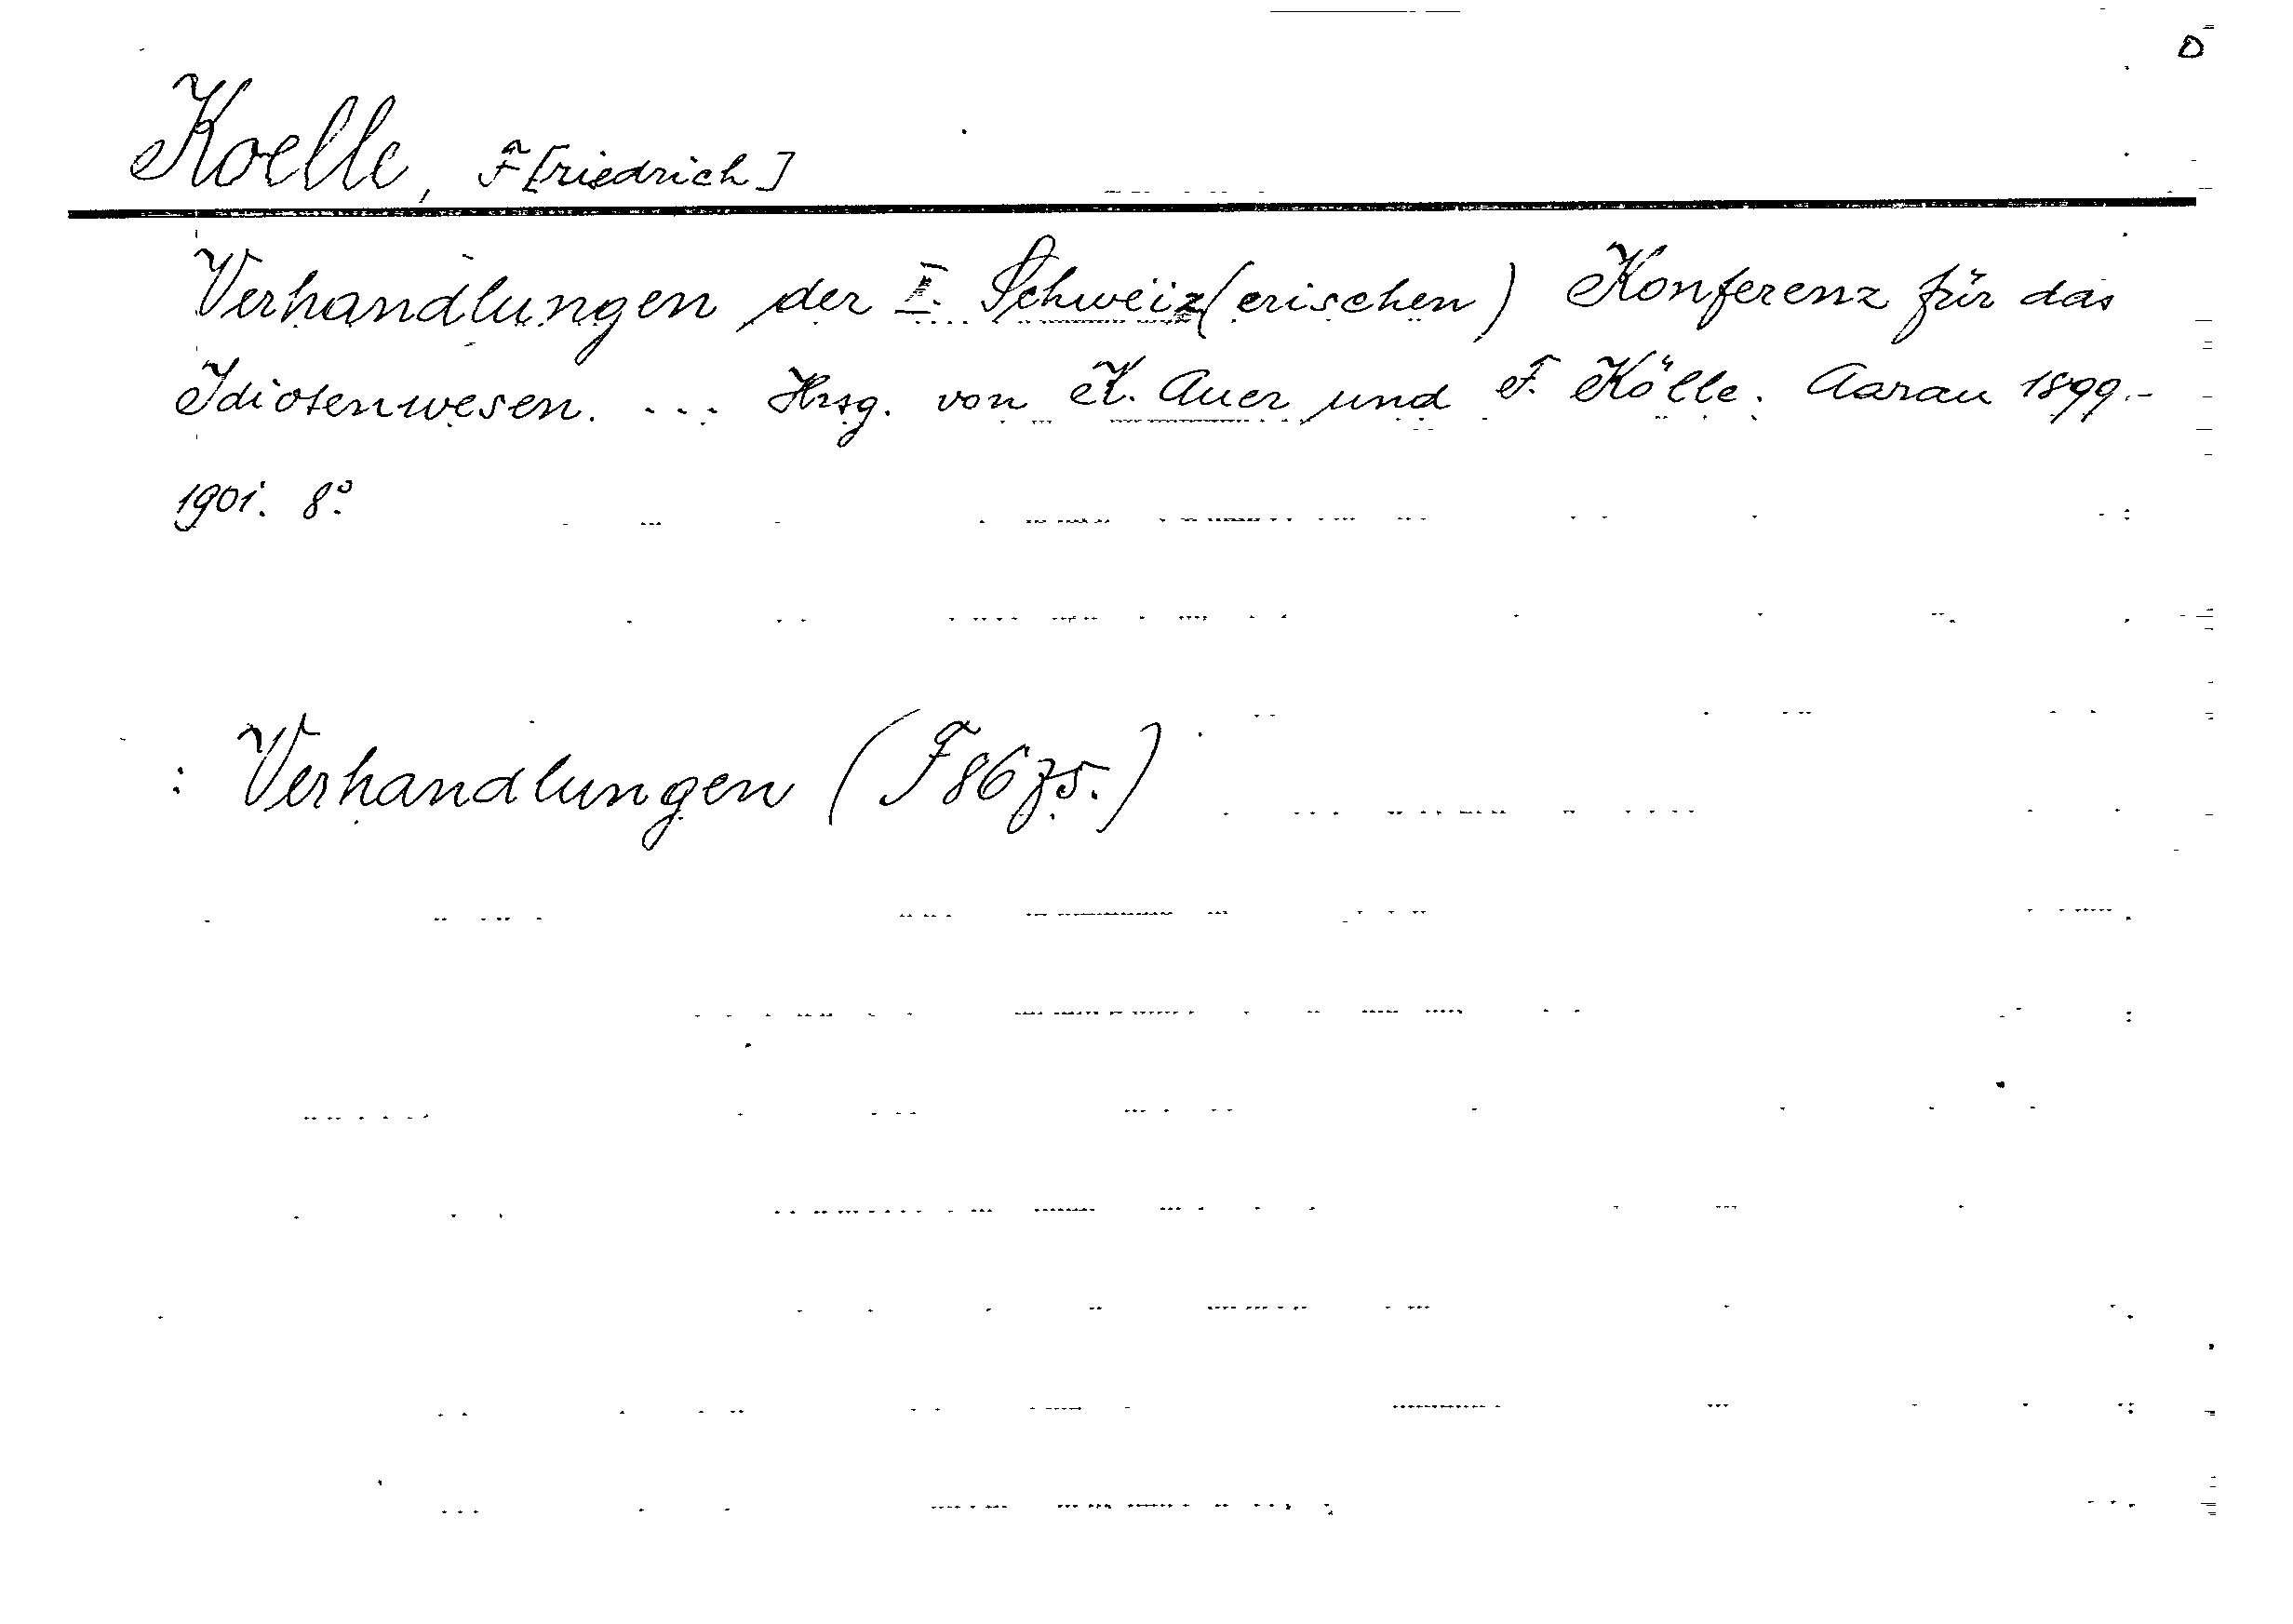 D
Koelle, F[riedrich]
Verhandlungen der I. Schweiz(erischen) Konferenz für das
Idiotenwesen. ... Hrsg. von K. Auer und F. Kölle. Aarau 1899.-
1901. 8°.
: Verhandlungen (F8675.)